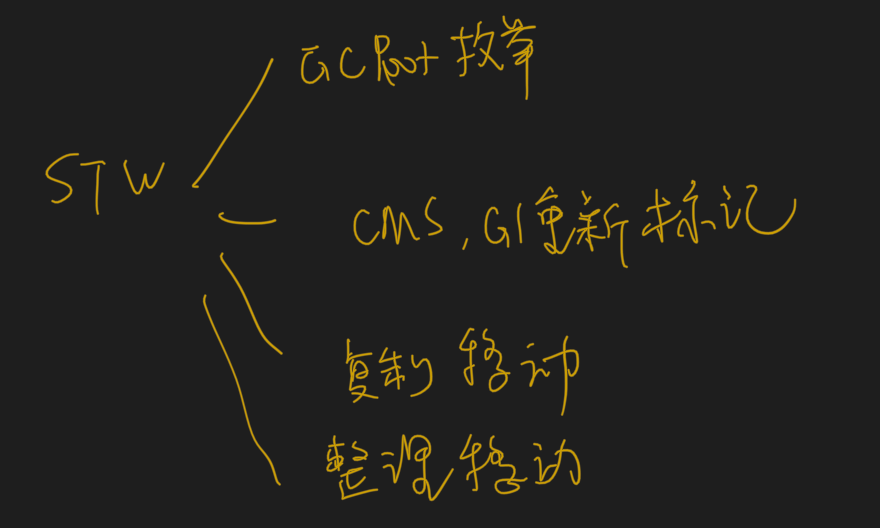 STW
GC Root 枚举
CMS, G1重新标记
复制移动
整理移动